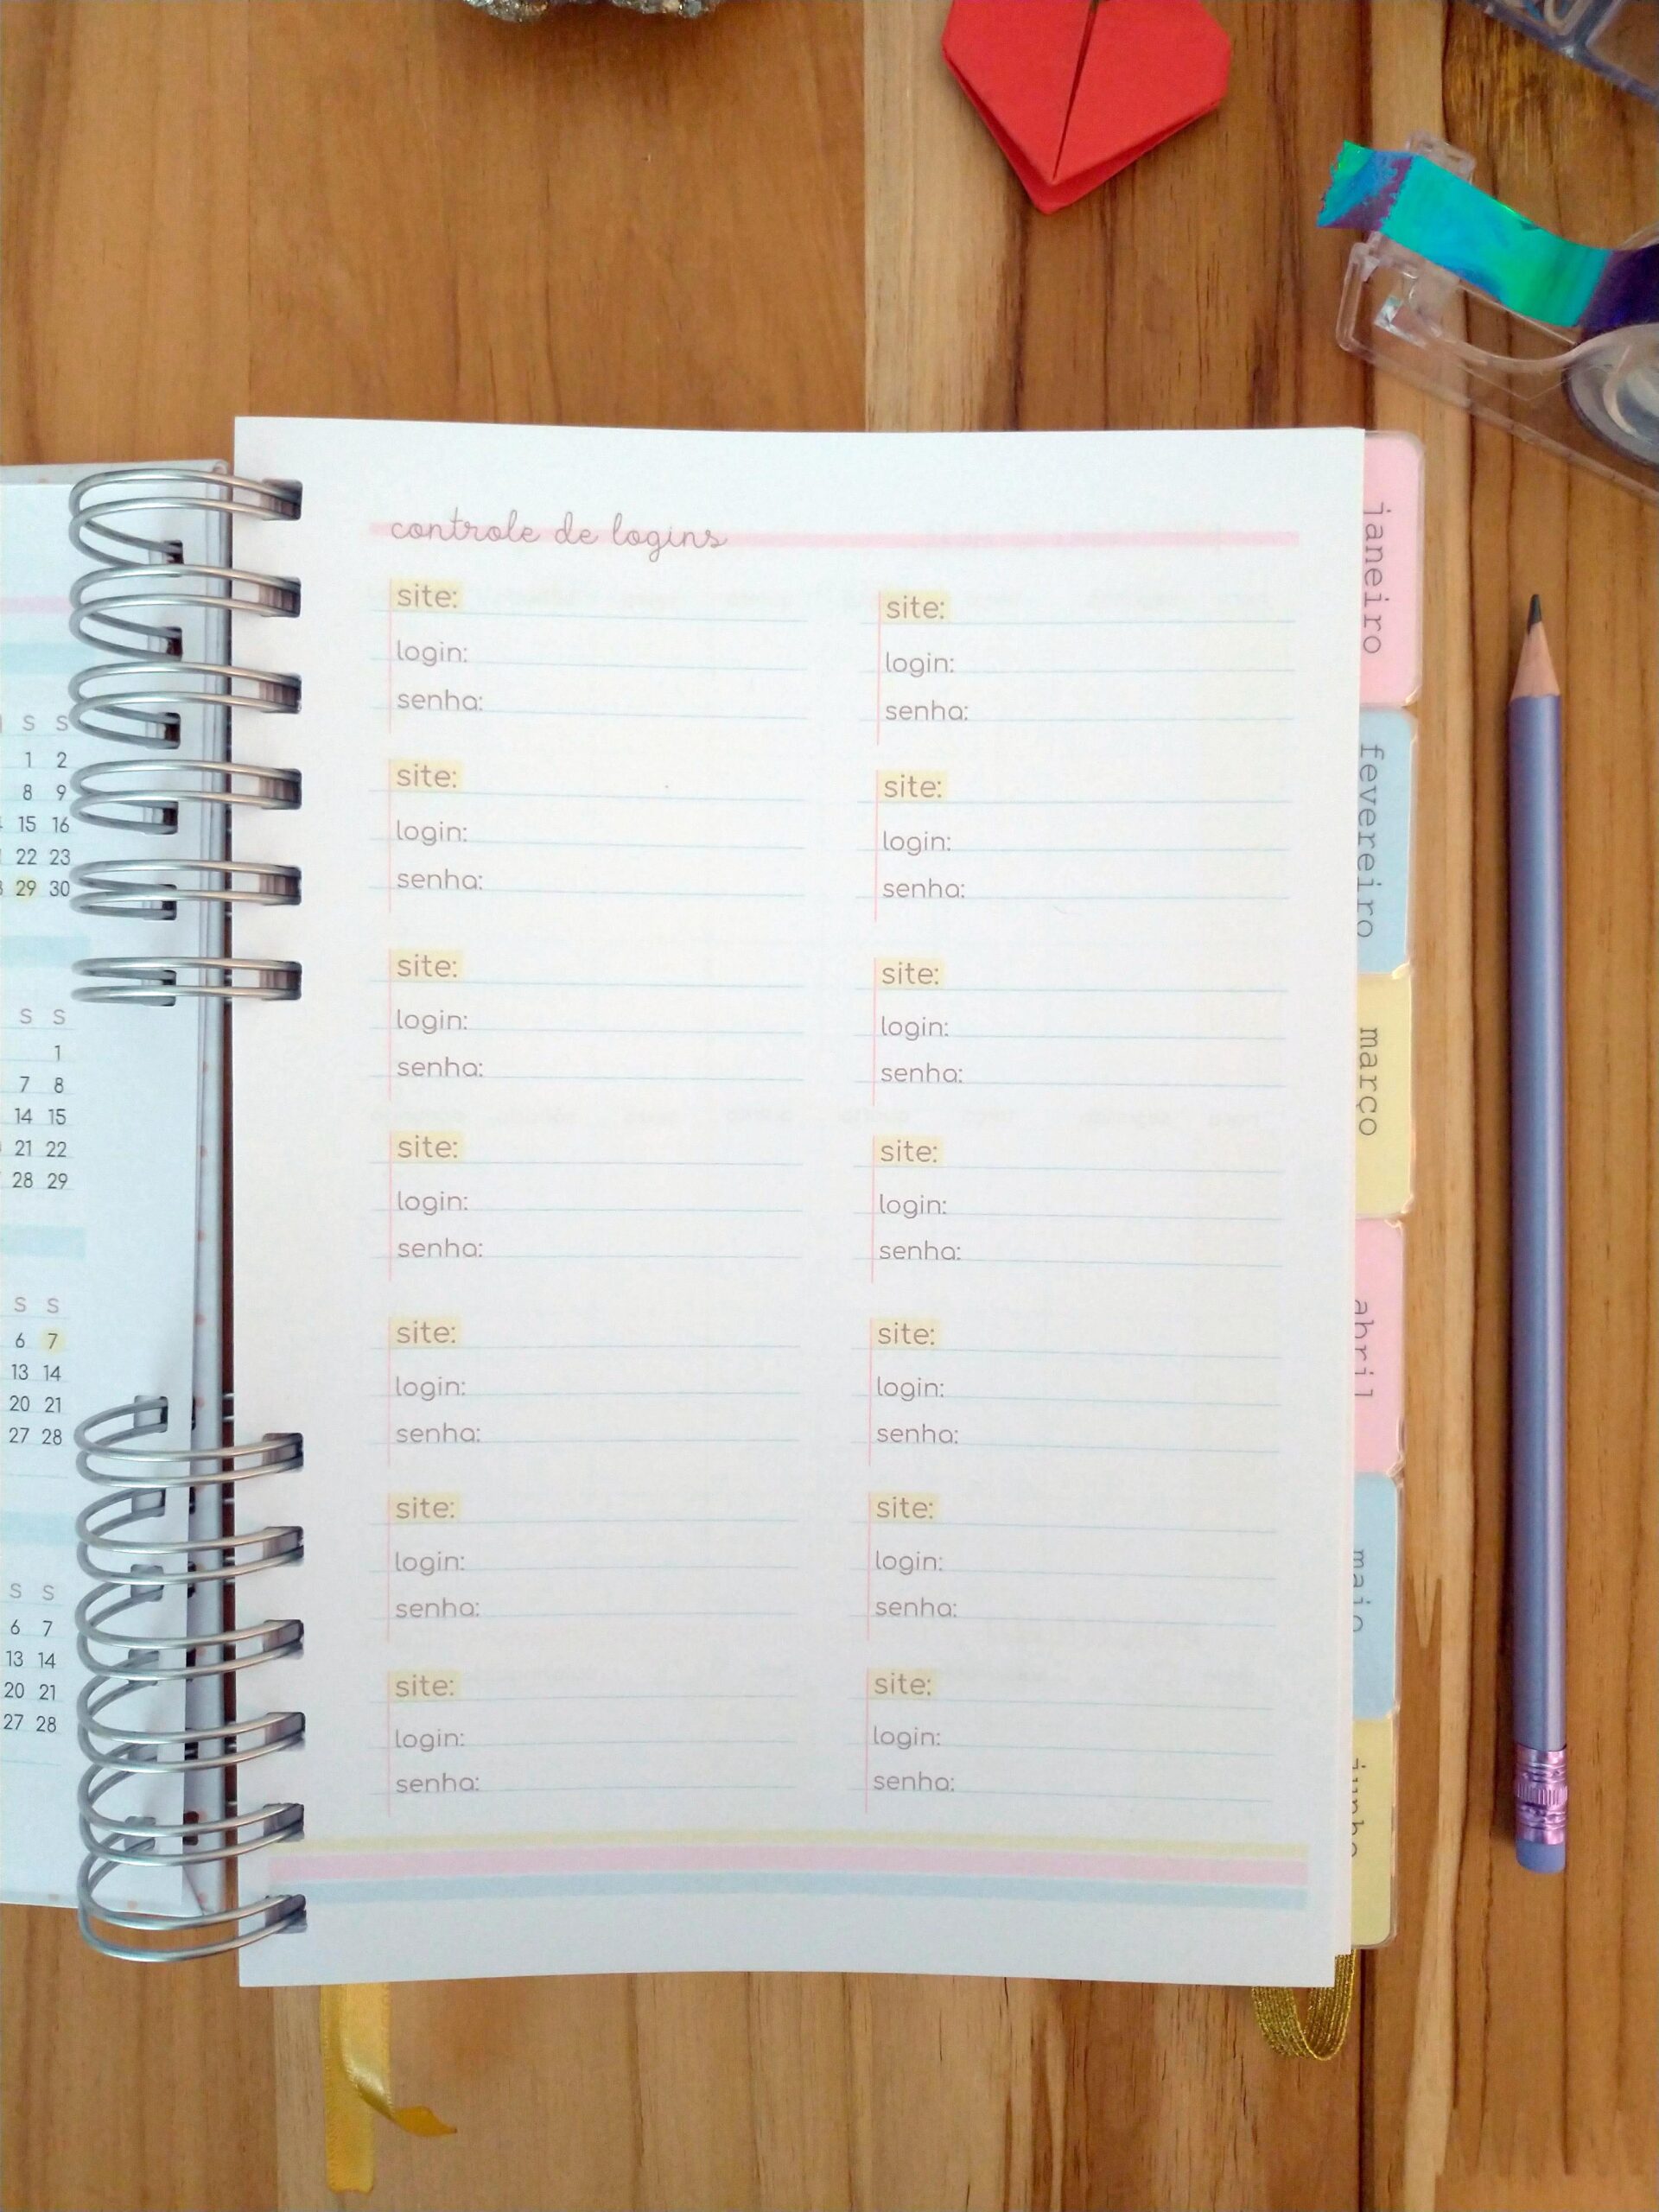 controle de logins
site:
login:
senha:
site:
login:
senha:
site:
login:
senha:
site:
login:
senha:
site:
login:
senha:
site:
login:
senha:
site:
login:
senha:
site:
login:
senha:
site:
login:
senha:
site:
login:
senha:
site:
login:
senha:
site:
login:
senha:
site:
login:
senha:
site:
login:
senha:
janeiro
fevereiro
março
abril
maio
junho
S S
1 2
8 9
15 16
22 23
29 30
S S
1
7 8
14 15
21 22
28 29
S S
6 7
13 14
20 21
27 28
S S
6 7
13 14
20 21
27 28